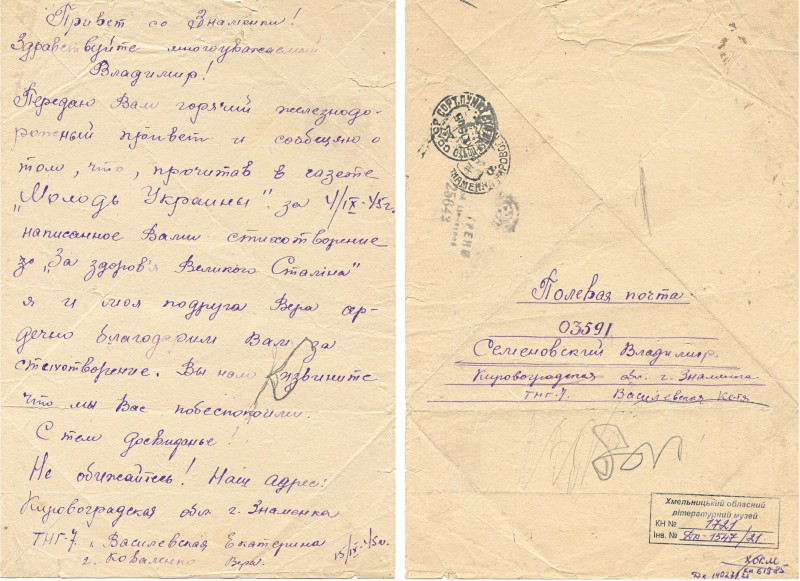 Привет со Знаменки!
Здравствуйте многоуважаемый
Владимир!
Передаю Вам горячий железнодо-
рожный привет и сообщаю о
том, что, прочитав в газете
„Молодь Украины" за 4/IX-45г.
написанное Вами стихотворение
„За здоров'я Великого Сталіна"
я и моя подруга Вера сер-
дечно благодарим Вам за
стихотворение. Вы нас извините
что мы Вас побеспокоили.
С тем досвиданье!
Не обижайтесь! Наш адрес:
Кировоградская обл г. Знаменка
ТНГ-7. Василевская Екатерина
Коваленко Вера.
15/IX-45г.
СОРТ.ПУНКТ
25643
Полевая почта
03591
Семеновский Владимир.
Кировоградская обл. г. Знаменка
ТНГ-7. Василевская Катя
Хмельницький обласний
літературний музей
КН № 1721
Інв. № Дп-1547/21
ХОКМ
КН 61985
Дс 14027/21